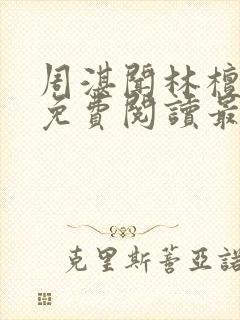 周湛聞林檀
免費閱讀最
克里斯蒂亞諾